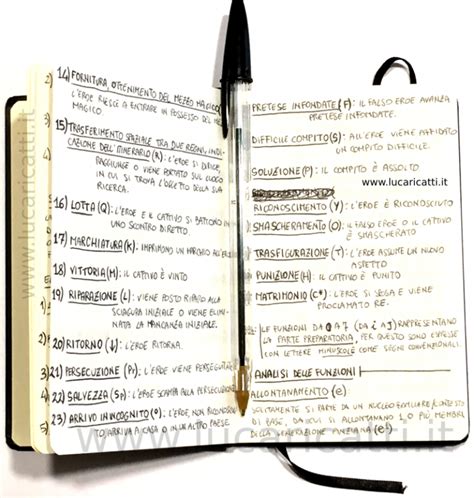 14) FORNITURA, OTTENIMENTO DEL MEZZO MAGICO
MAGICO L'EROE RIESCE A ENTRARE IN POSSESSO DEL MEZZO
15) TRASFERIMENTO SPAZIALE TRA DUE REGNI, INDI-
CAZIONE DELL'ITINERARIO (R): L'EROE SI DIRIGE,
RAGGIUNGE O VIENE PORTATO SUL LUOGO
IN CUI SI TROVA L'OGGETTO DELLA SUA
RICERCA.
16) LOTTA (Q): L'EROE E IL CATTIVO SI BATTONO IN
UNO SCONTRO DIRETTO.
17) MARCHIATURA (K): IMPRIMONO UN MARCHIO ALL'
18) VITTORIA (M): IL CATTIVO È VINTO
19) RIPARAZIONE (L): VIENE POSTO RIPARO ALLA
SCIAGURA INIZIALE O VIENE ELIMI-
NATA LA MANCANZA INIZIALE.
20) RITORNO (↓): L'EROE RITORNA.
21) PERSECUZIONE (P): L'EROE VIENE
22) SALVEZZA (S): L'EROE SCAMPA ALLA PERSECUZIONE
23) ARRIVO IN INCOGNITO (O): L'EROE, NON
ARRIVA A CASA O IN UN ALTRO PAESE
PRETESE INFONDATE (F): IL FALSO EROE AVANZA
PRETESE INFONDATE.
DIFFICILE COMPITO (S): ALL'EROE VIENE AFFIDATO
UN COMPITO DIFFICILE.
SOLUZIONE (P): IL COMPITO È ASSOLTO
www.lucaricatti.it
RICONOSCIMENTO (Y): L'EROE È RICONOSCIUTO
SMASCHERAMENTO (O): IL FALSO EROE O IL CATTIVO
È SMASCHERATO
TRASFIGURAZIONE (T): L'EROE ASSUME UN NUOVO
ASPETTO
PUNIZIONE (H): IL CATTIVO È PUNITO
MATRIMONIO (C*): L'EROE SI SPOSA E VIENE
PROCLAMATO RE.
LE FUNZIONI DA 0 A 7 (DA i A j) RAPPRESENTANO
LA PARTE PREPARATORIA, PER QUESTO SONO ESPRESSE
CON LETTERE MINUSCOLE COME SEGNI CONVENZIONALI.
ANALISI DELLE FUNZIONI
ALLONTANAMENTO (e)
SOLITAMENTE SI PARTE DA UN NUCLEO FAMILIARE/
DI BASE, DA CUI SI ALLONTANANO 1 O PIÙ MEMBRI
DELLA GENERAZIONE ANZIANA (e¹)
www.lucaricatti.it
www.lucaricatti.it